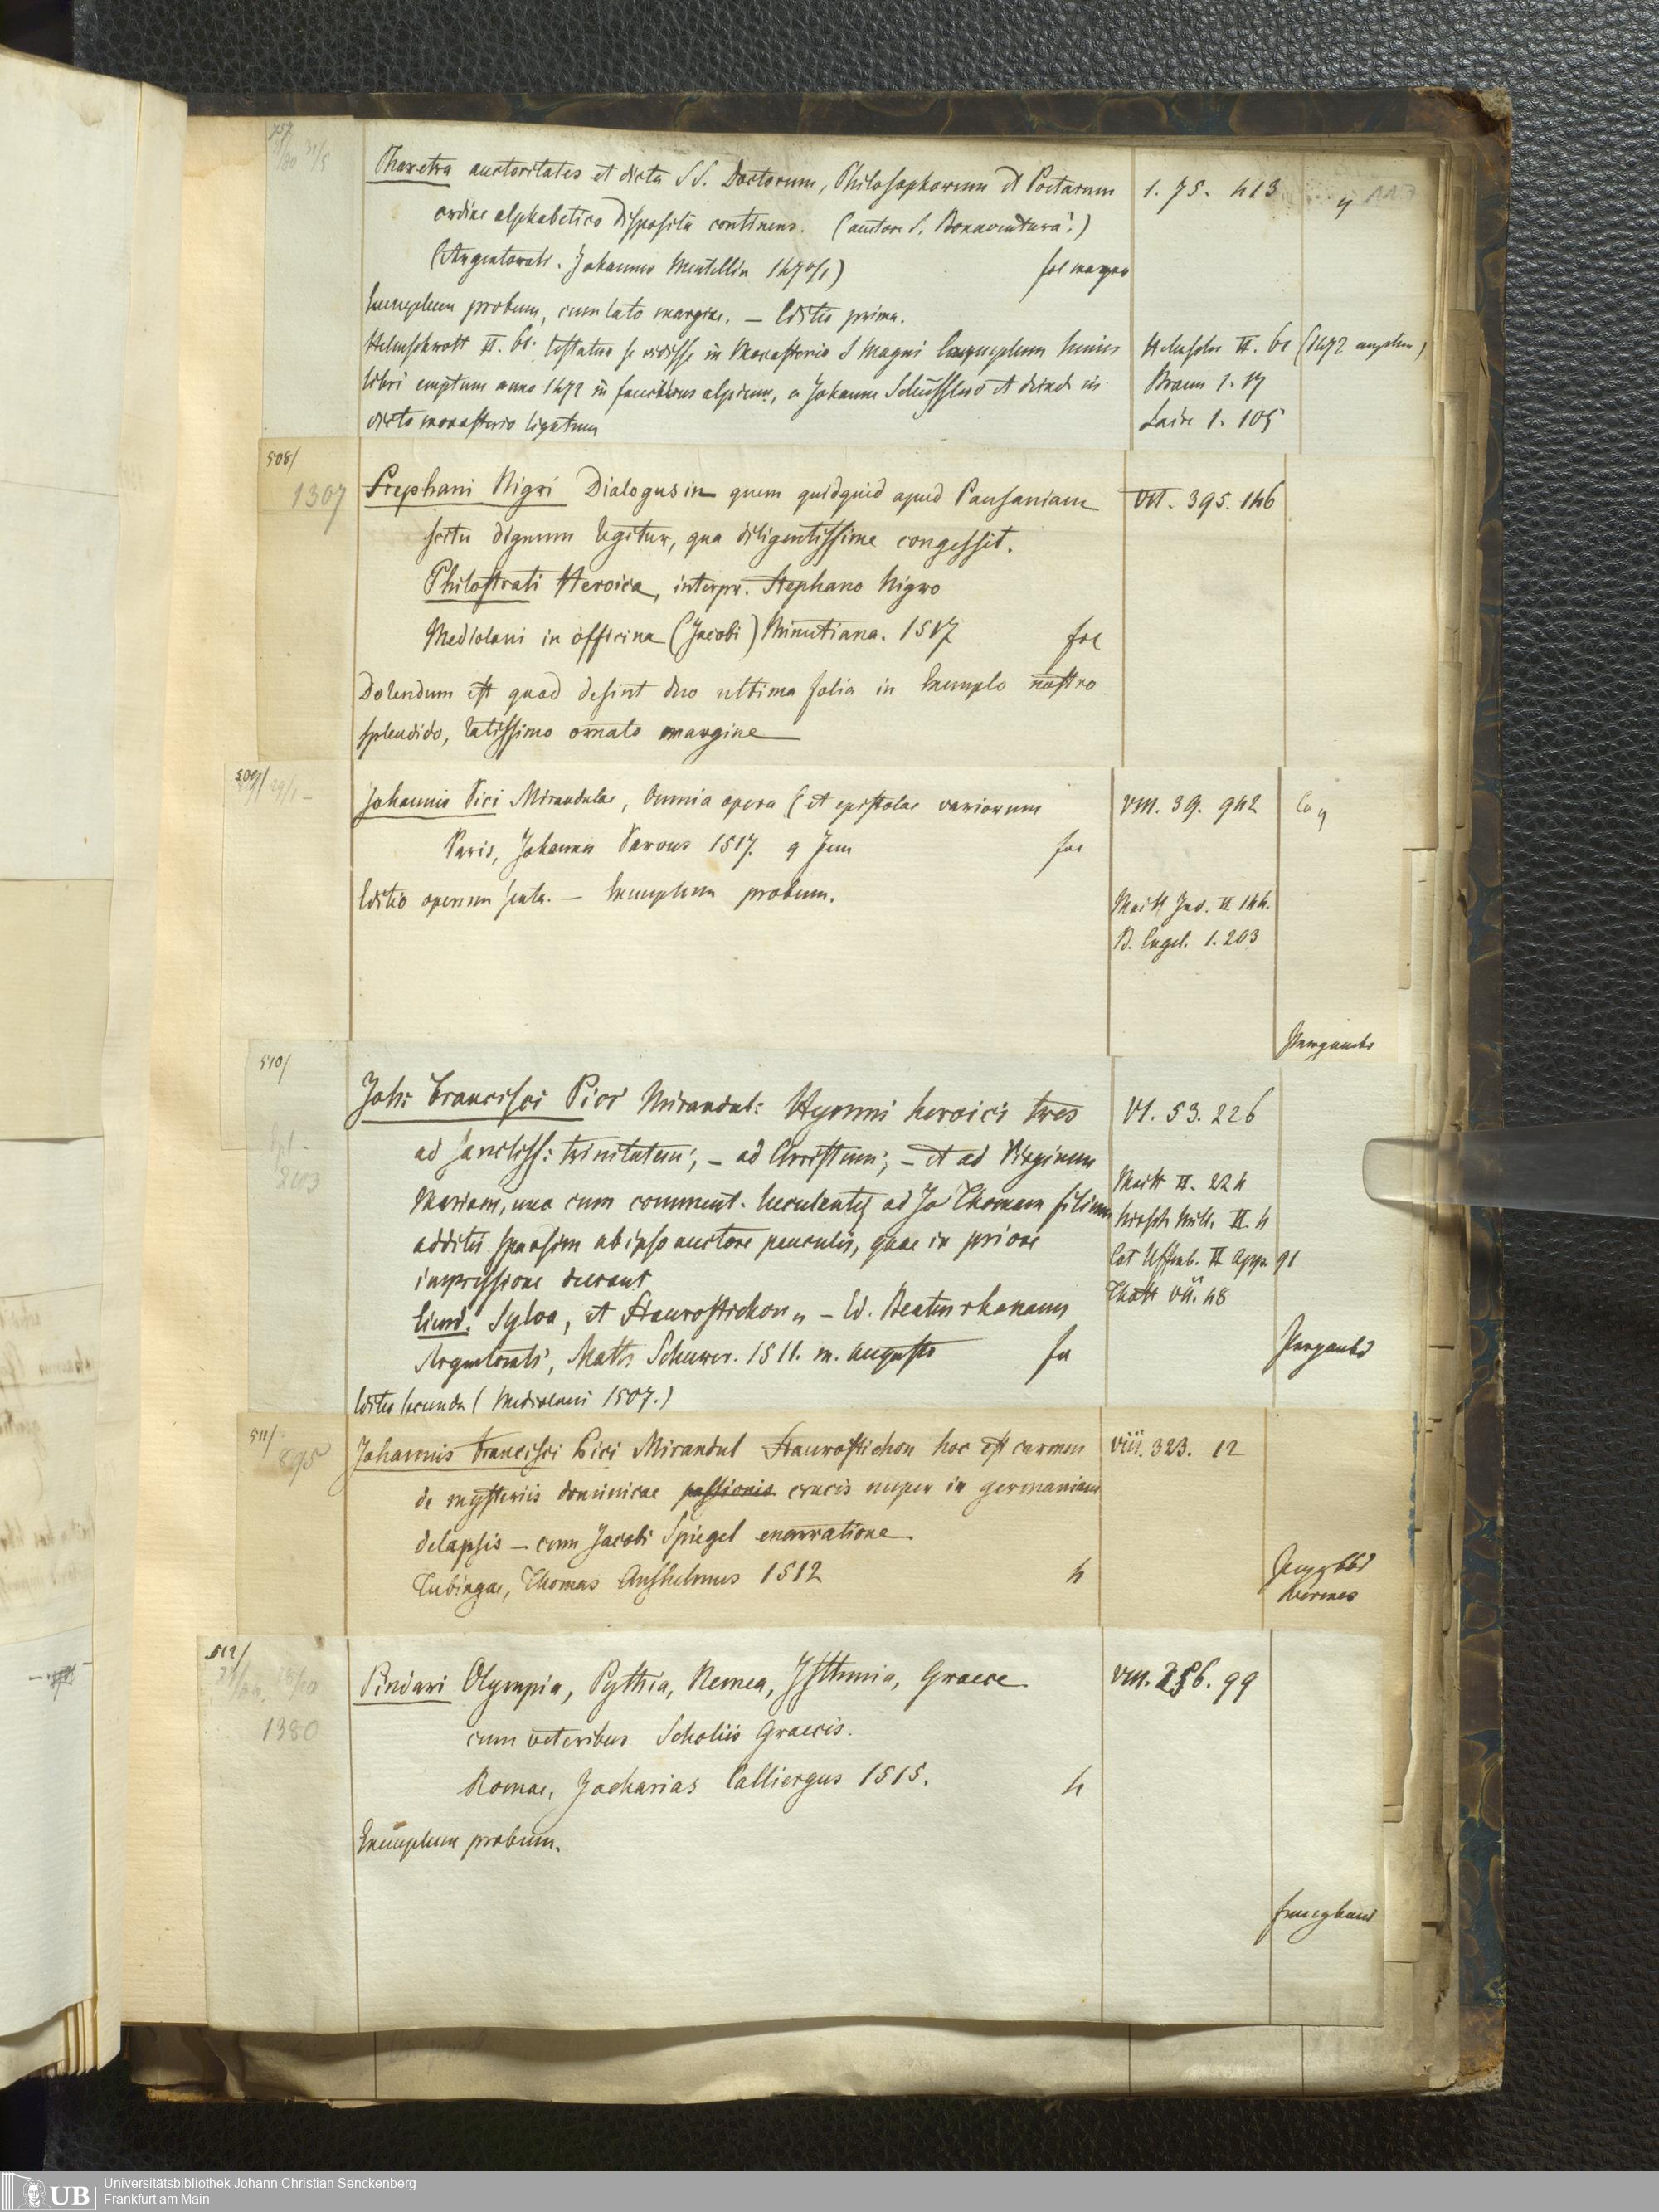 Pharetra auctoritates et dicta SS. Doctorum, Philosophorum et Poetarum 1. 75. 413
ordine alphabetico disposita continens. (auctore S. Bonaventura?)
(Argentorati. Johannes Mentellin 1470/1) fol magno
Exemplum probum, cum lato margine. — Editio prima.
Helmschrott II. 61. testatur se vidisse in Monasterio S Magni Exemplum huius
libri emptum anno 1472 in faucibus alpium, a Johanne Schüssler et deinde in
dicto monasterio ligatum
Helmschr II. 61 (1472
Braun 1. 17
Laire 1. 105
508/
1307
Stephani Nigri Dialogus in quem quidquid apud Pausaniam VII. 395. 146
scitu dignum legitur, qua diligentissime congessit.
Philostrati Heroica, interpr. Stephano Nigro
Mediolani in officina (Jacobi) Minutiana. 1517 fol
Dolendum est quod desint duo ultima folia in Exemplo nostro
splendido, latissimo ornato margine
509/
Johannis Pici Mirandulae, Omnia opera (et epistolae variorum VIII. 39. 942
Paris, Johannes Parvus 1517. 9 Jun fol
Editio operum sexta. — Exemplum probum.
Maitt Ind. II 144.
B. Engel. 1. 203
Pergamb
510/
Joh: Francisci Pici Mirandul: Hymni heroici tres VI. 53. 226
ad sanctiss: trinitatem; — ad Christum; — et ad Virginem
Mariam, una cum comment. luculentis ad Jo Thomam filium
additis sparsim ab ipso auctore pauculis, quae in priore
impressione deerant
Eiusd. Sylva, et Staurostichon — Ed. Beatus rhenanus
Argentorati, Math Schurer. 1511. m. Augusto fol
Editio secunda (Mediolani 1507.)
Maitt II. 224
Hirsch Mill. II. 4
Cat Uffenb. II App. 91
Thott VII. 48
Pergamb
511/
895
Johannis Francisci Pici Mirandul Staurostichon hoc est carmen VIII. 323. 12
de mysteriis dominicae passionis crucis nuper in germaniam
delapsis — cum Jacobi Spiegel enarratione
Tubingae, Thomas Anshelmus 1512 4
512/
1380
Pindari Olympia, Pythia, Nemea, Isthmia, Graece VIII. 256. 99
cum veteribus Scholiis Graecis.
Romae, Zacharias Calliergus 1515. 4
Exemplum probum.
UB Universitätsbibliothek Johann Christian Senckenberg
Frankfurt am Main